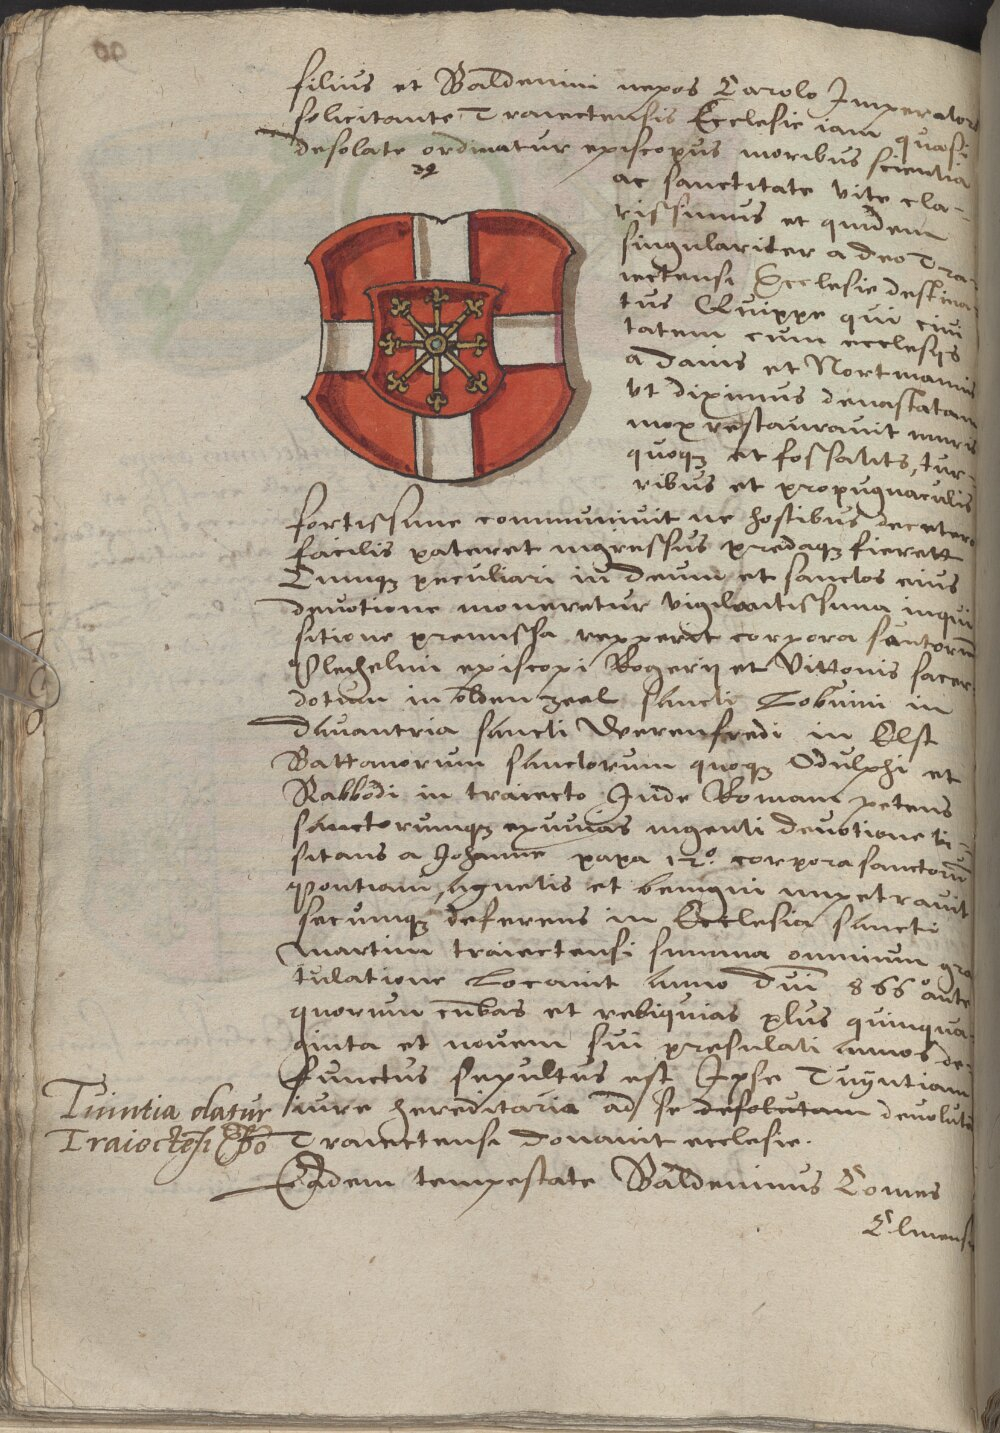 filius et Baldewini nepos Carolo Imperatore
solicitante Traiectensis Ecclesie iam quasi
desolate ordinatur episcopus moribus scientia
ac sanctitate vite cla-
rissimus et quidem
singulariter a deo Tra-
iectensi Ecclesie destina
tus Quippe qui civi
tatem cum ecclesijs
a danis et Nortmannis
vt diximus devastatam
mox restauravit muris
quoqz et fossatis, tur-
ribus et propugnaculis
fortissime communivit ne hostibus decetero
facilis pateret ingressus predaqz fierett
Cumqz peculiari in deum et sanctos eius
devotione moneretur vigilantissima inqui
sitione premissa repperit corpora sanctorum
Plechelmi episcopi Rogerij et Vittonis sacer
dotum in oldenzeel sancti Lebuini in
davantria sancti Werenfredi in Elst
Battavorum sanctorum quoqz Odulphi et
Rabbodi in traiecto Inde Romam petens
sanctorumqz exuuias ingenti devotione vi-
sitans a Johanne papa 12º. corpora sanctorum
Pontiani, agnetis et benigni impetravit
secumqz deferens in Ecclesia sancti
martini traiectensi summa omnium gra
tulatione Locavit Anno Dni 866º ante
quorum cubas et reliquias plus quinqua-
ginta et novem sui presulati annos de-
functus sepultus est Ipse Tuyntiam
iure hereditaria ad se desolutam devolutam
Traiectensi donavit ecclesie.
Tuintia datur
Traiectesi Epo
Eadem tempestate Baldewinus Comes
Clivensis